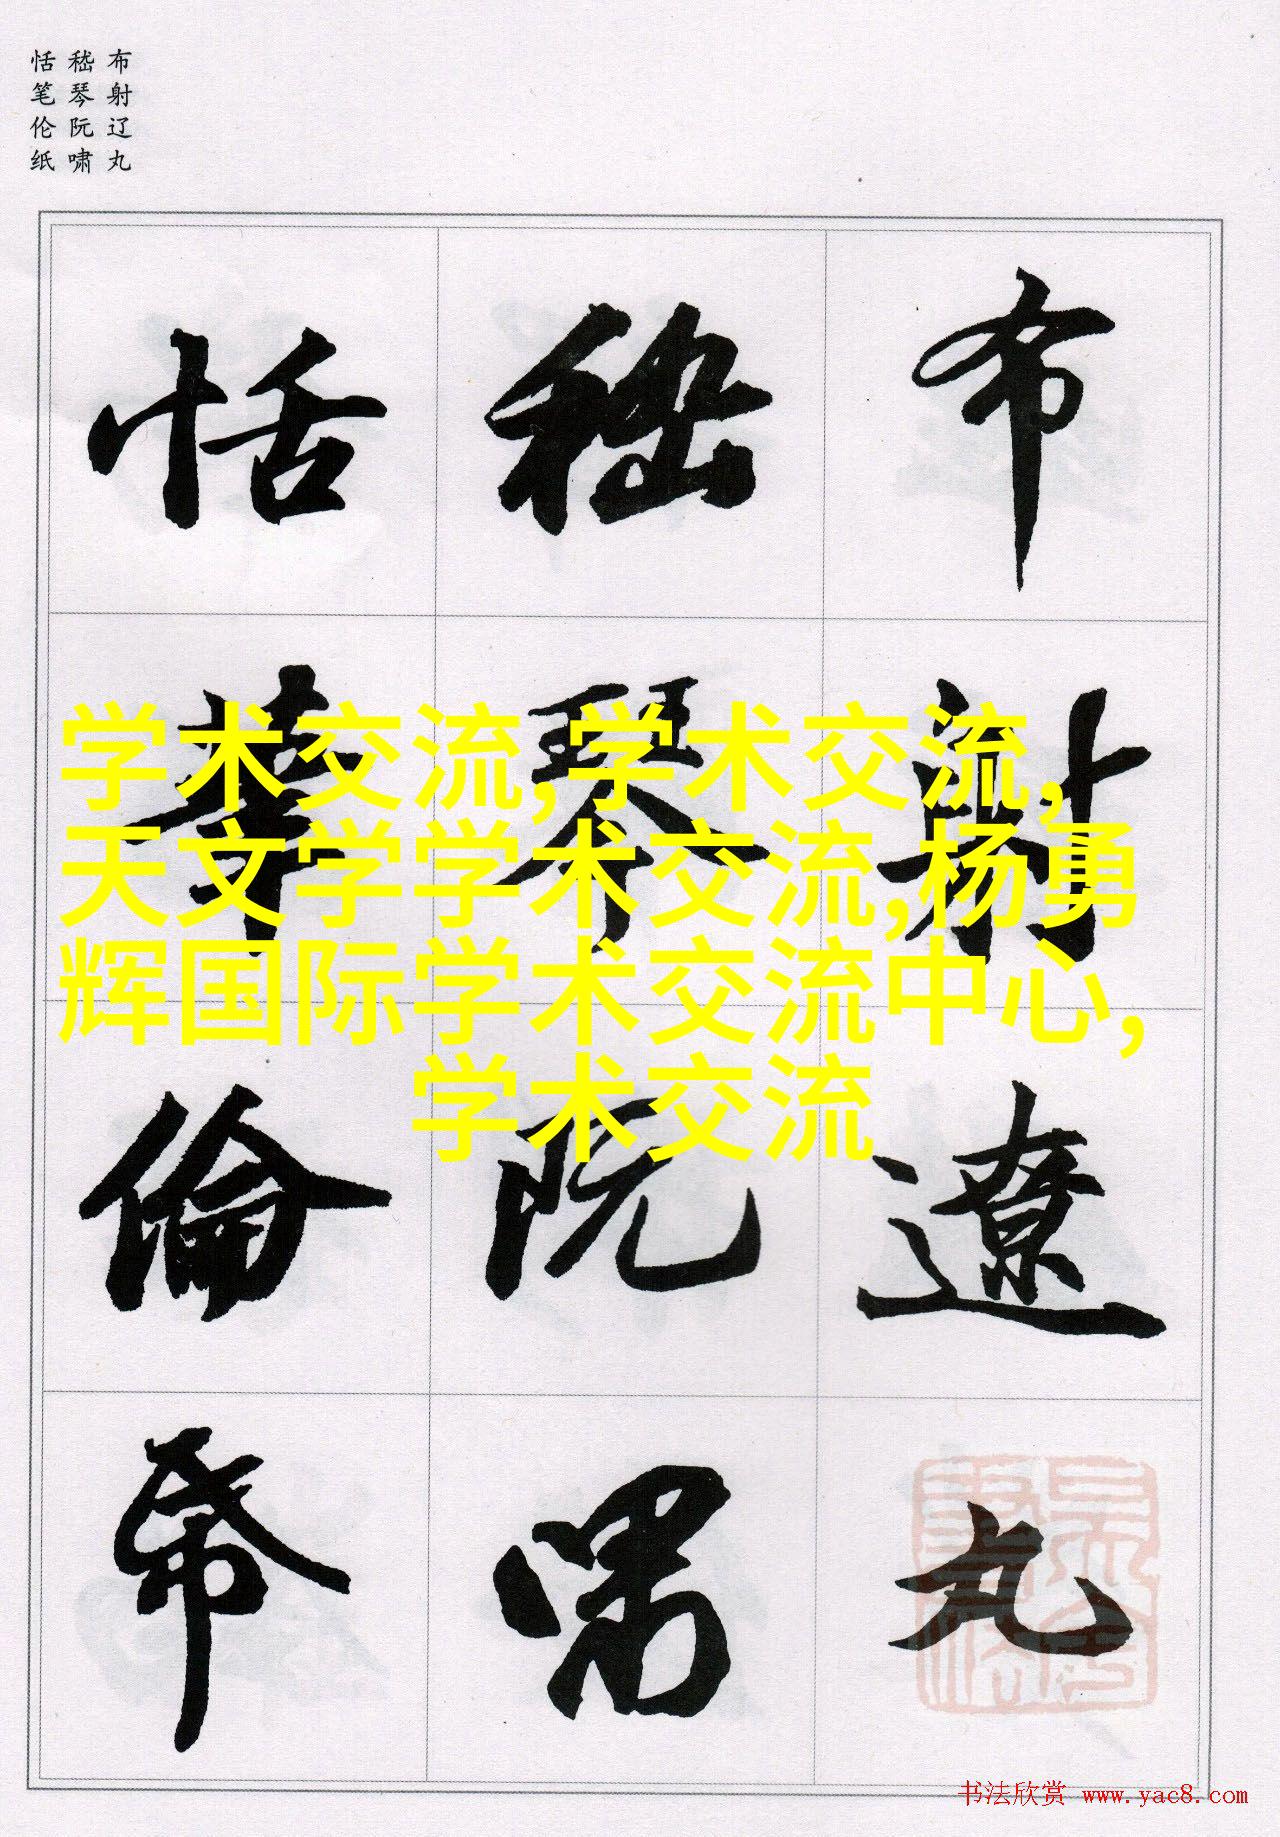 布射辽丸
嵇琴阮啸
恬笔伦纸
布射遼丸
嵇琴阮嘯
恬筆倫帋
学术交流,学术交流,
天文学学术交流,杨勇
辉国际学术交流中心,
学术交流
书法欣赏 www.yac8.com